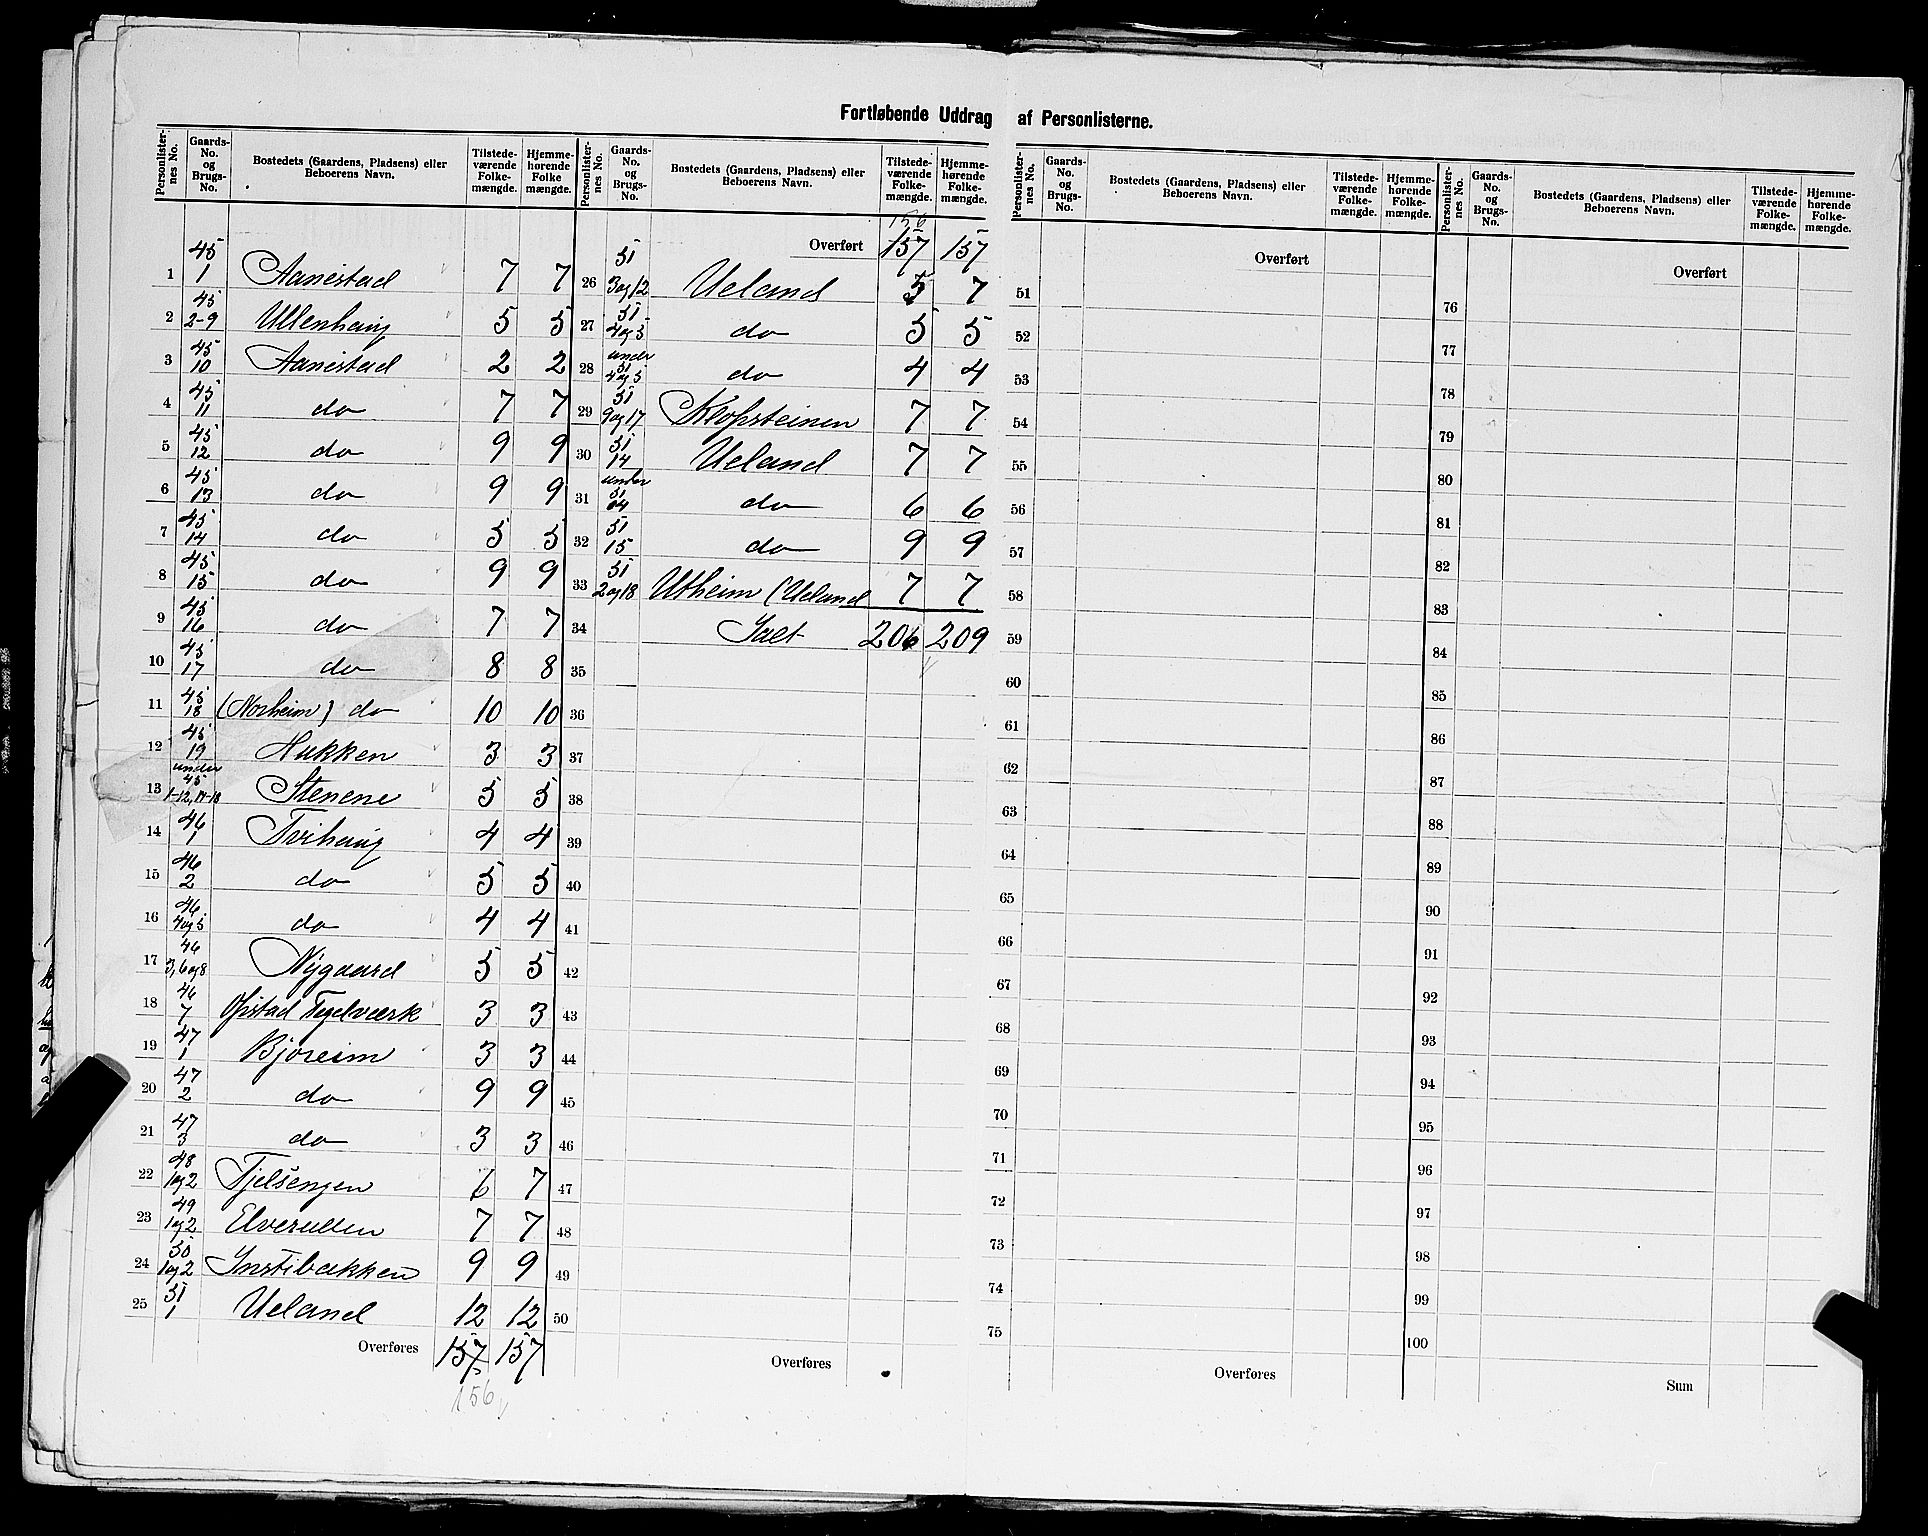 Fortløbende Uddrag af Personlisterne.
Personlister-nes No. Gaards-No. og Brugs-No. Bostedets (Gaardens, Pladsens) eller Beboerens Navn. Tilstede-værende Folke-mængde. Hjemme-hørende Folke mængde.
1 45 1 Aanestad 7 7
2 45 2-9 Ullenhaug 5 5
3 45 10 Aanestad 2 2
4 45 11 do 7 7
5 45 12 do 9 9
6 45 13 do 9 9
7 45 14 do 5 5
8 45 15 do 9 9
9 45 16 do 7 7
10 45 17 do 8 8
11 45 18 (Norheim) do 10 10
12 45 19 Hakken 3 3
13 under 45 1-12, 14-18 Stenene 5 5
14 46 1 Tvihaug 4 4
15 46 2 do 5 5
16 46 4og5 do 4 4
17 46 3, 6og8 Nygaard 5 5
18 46 7 Opstad Teglværk 3 3
19 47 1 Bjoreim 3 3
20 47 2 do 9 9
21 47 3 do 3 3
22 48 1og2 Fjelsengen 6 7
23 49 1og2 Elverullen 7 7
24 50 1og2 Instibakken 9 9
25 51 1 Ueland 12 12
Overføres 157 157
156
Personlister-nes No. Gaards-No. og Brugs-No. Bostedets (Gaardens, Pladsens) eller Beboerens Navn. Tilstede-værende Folke-mængde. Hjemme-hørende Folke-mængde.
156
Overført 157 157
26 51 3og12 Ueland 5 7
27 51 4og5 do 5 5
28 under 51 4og5 do 4 4
29 51 9og17 Klopsteinen 7 7
30 51 14 Ueland 7 7
31 under 51 14 do 6 6
32 51 15 do 9 9
33 51 2og18 Utheim (Ueland 7 7
34 Ialt 206 209
35
36
37
38
39
40
41
42
43
44
45
46
47
48
49
50
Overføres
Personlister-nes No. Gaards-No. og Brugs-No. Bostedets (Gaardens, Pladsens) eller Beboerens Navn. Tilstede-værende Folke-mængde. Hjemme-hørende Folke-mængde.
Overført
51
52
53
54
55
56
57
58
59
60
61
62
63
64
65
66
67
68
69
70
71
72
73
74
75
Overføres
Personlister-nes No. Gaards-No. og Brugs-No. Bostedets (Gaardens, Pladsens) eller Beboerens Navn. Tilstede-værende Folke-mængde. Hjemme-hørende Folke-mængde.
Overført
76
77
78
79
80
81
82
83
84
85
86
87
88
89
90
91
92
93
94
95
96
97
98
99
100
Sum